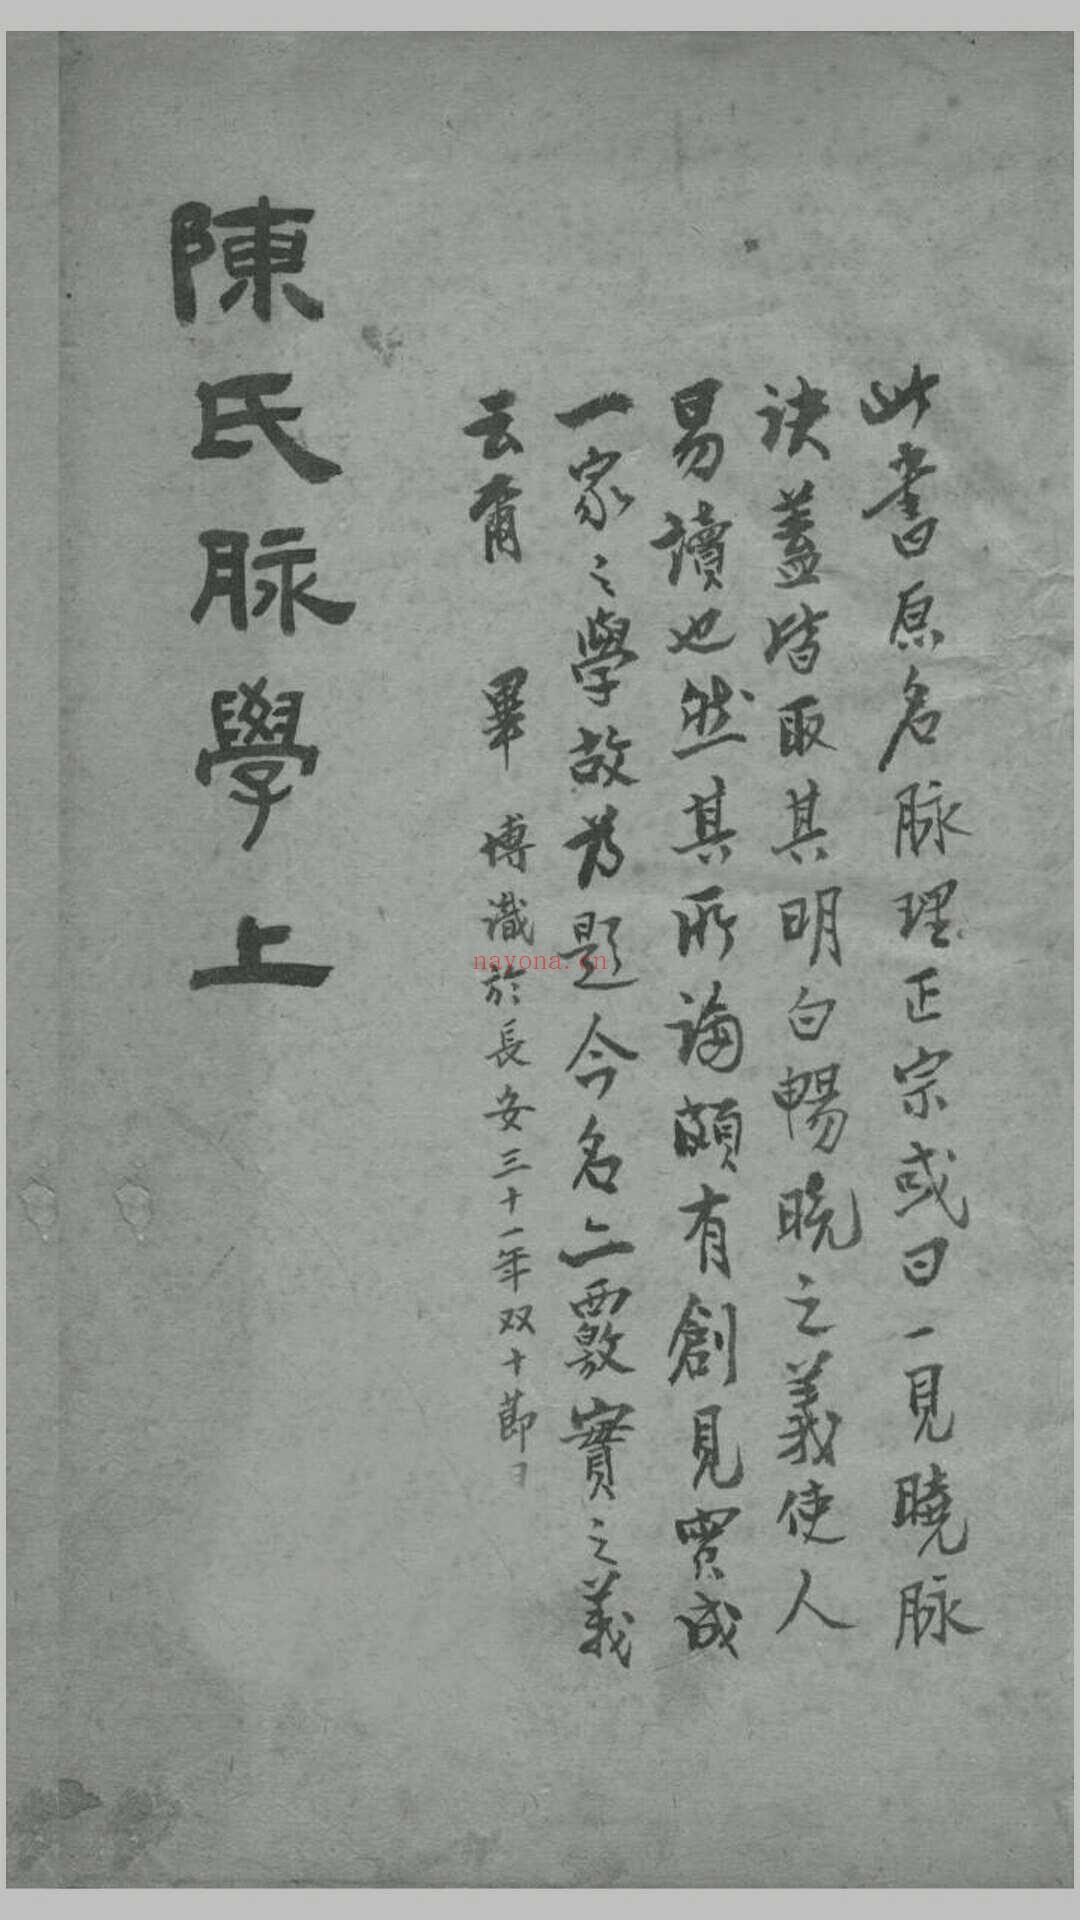 此書原名脉理正宗或曰一見曉脉
訣蓋皆取其明白暢曉之義使人
易讀也然其所論頗有創見實成
一家之學故為題今名亦覈實之義
云爾 畢博識於長安三十一年双十節日
陳氏脉學上
nayona.cn